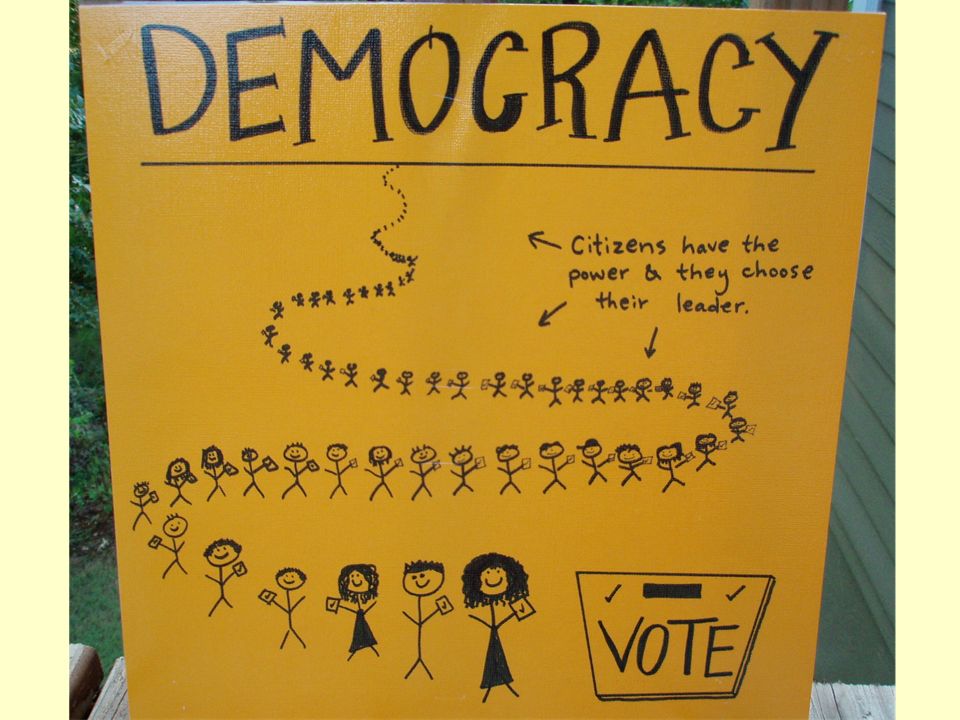 DEMOCRACY
Citizens have the
power & they choose
their leader.
VOTE